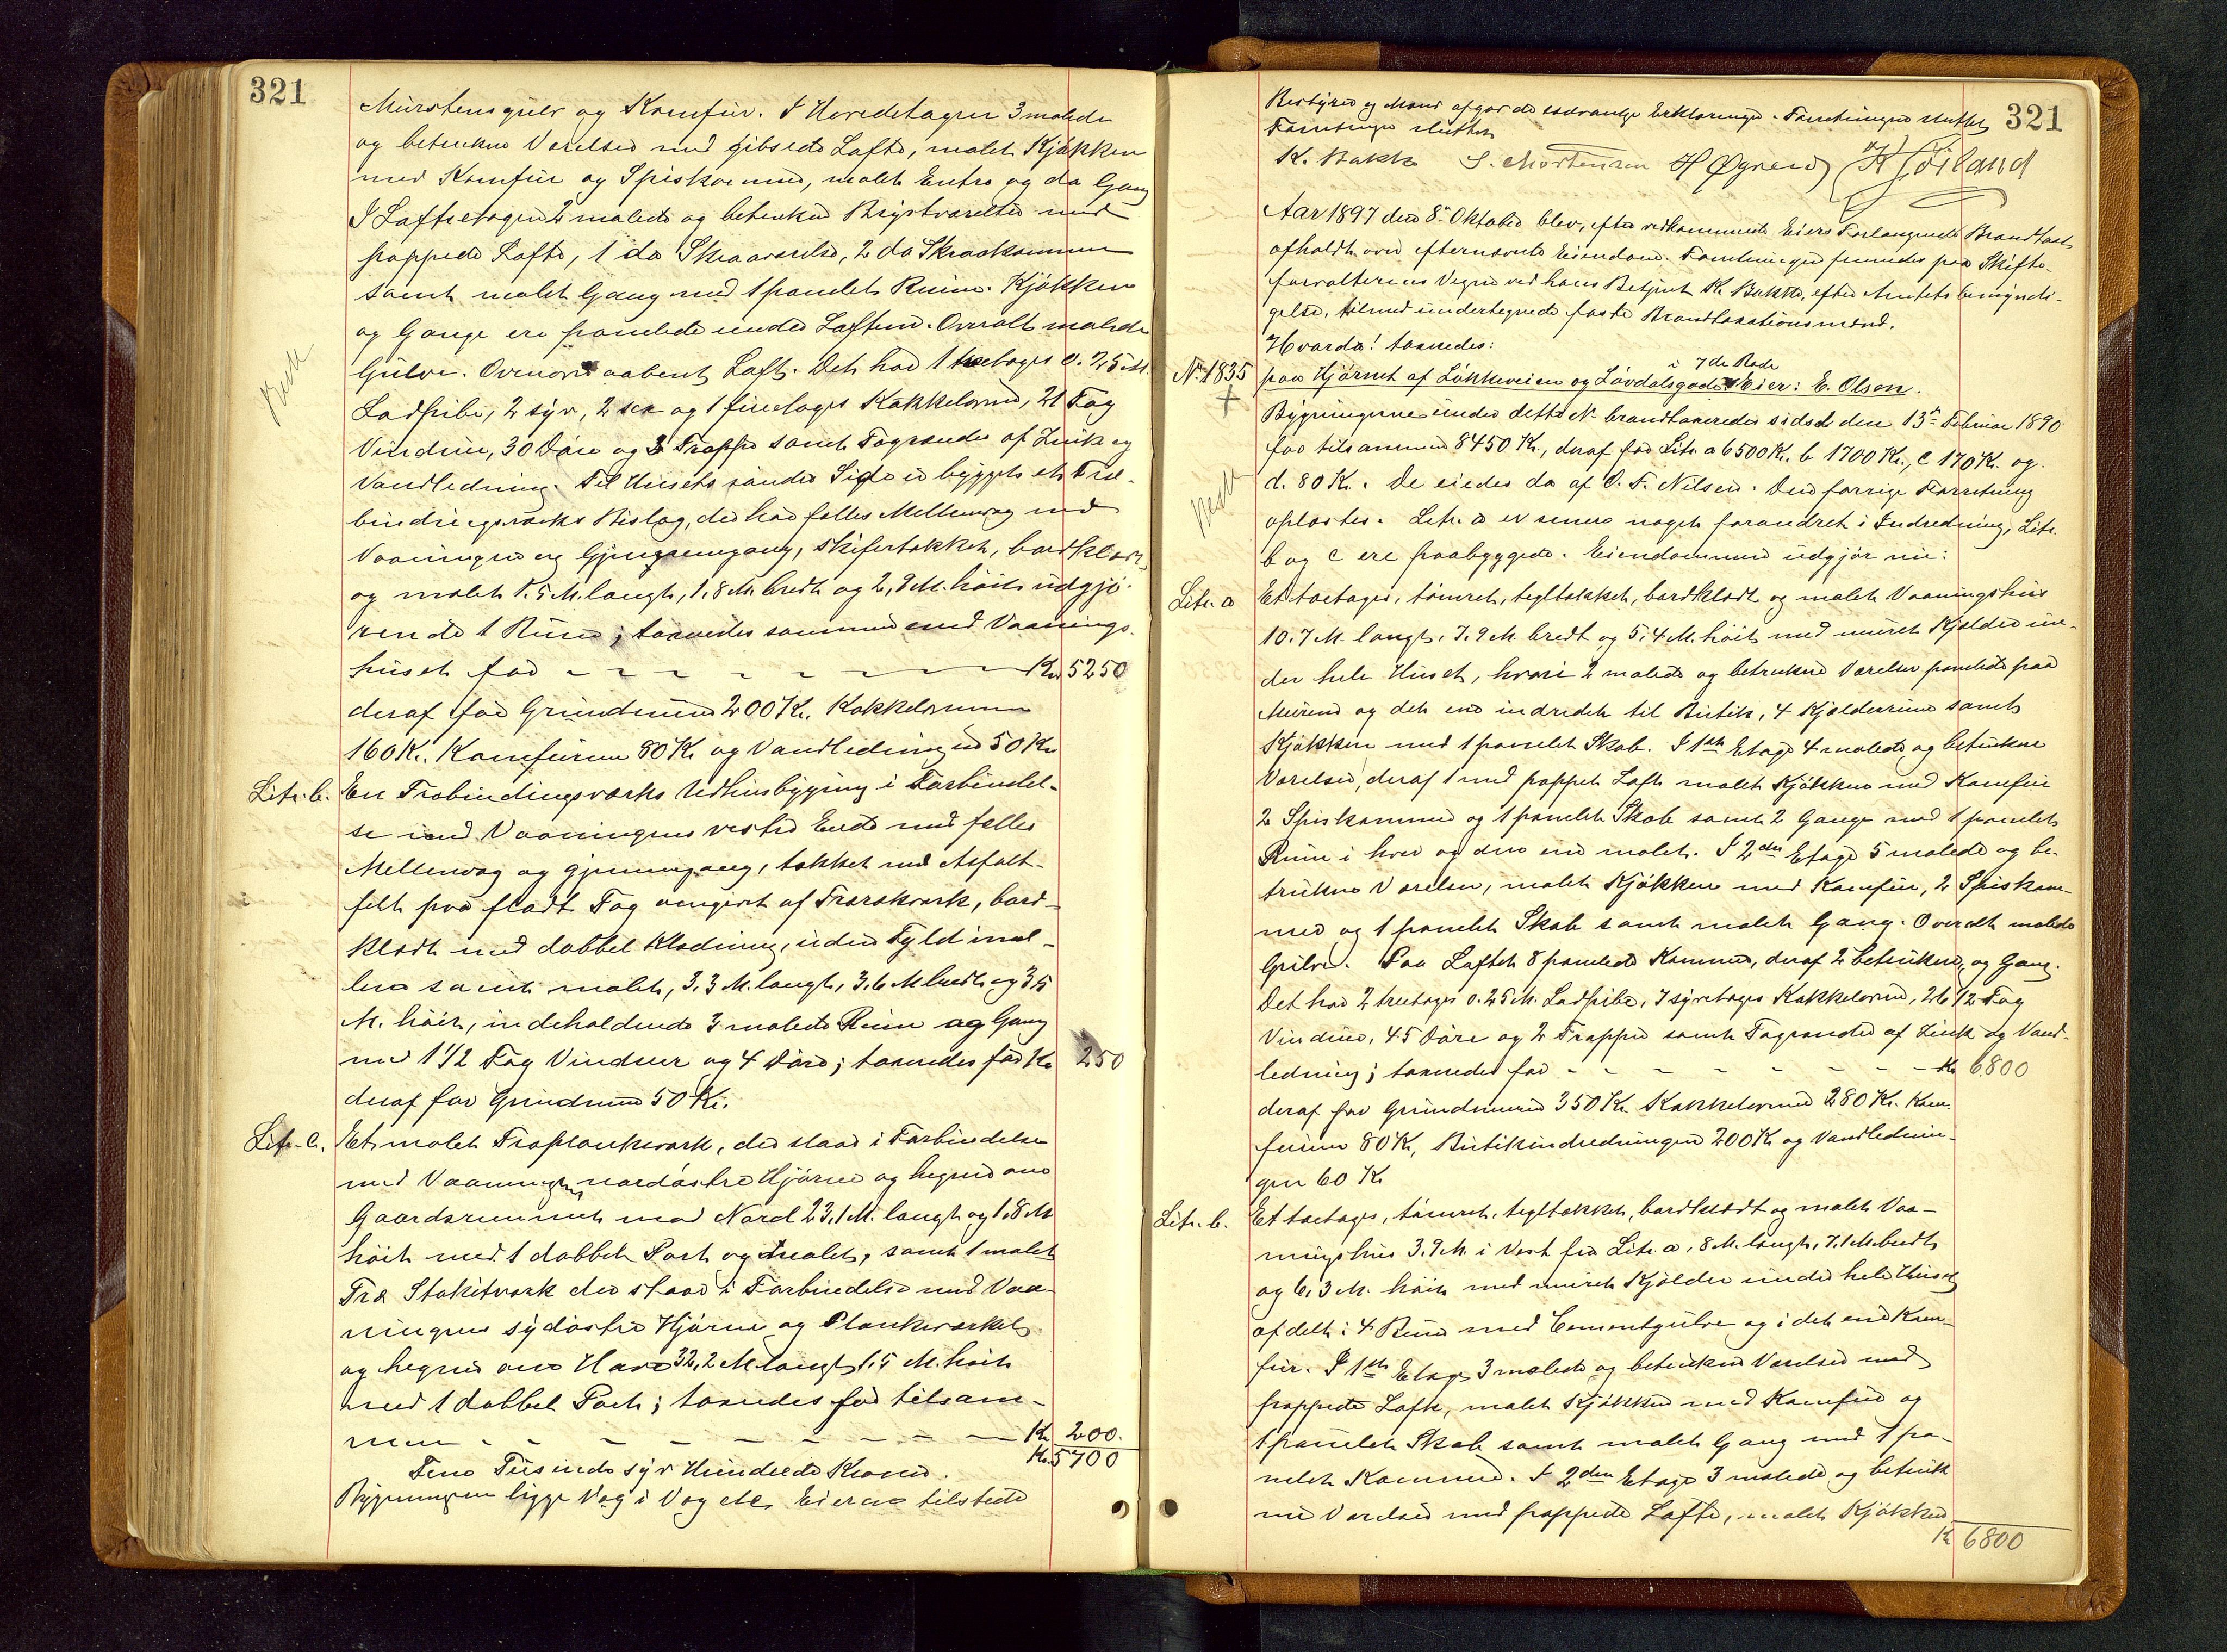 321
Murstensgulv og Komfur. I Hovedetagen 3 malede
og betrukne Værelser med gibsede Lofte, malet Kjøkken
med Komfur og Spiskammer, malet Entre og do Gang
I Loftsetagen 2 malede og betrukne Brystværelser med
pappede Lofte, 1 do Skraaværelse, 2 do Skraakammer
samt malet Gang med 1 panelet Rum. Kjøkken
og Gange ere panelede under Loftene. Overalt malede
Gulve. Ovenover aabent Loft. Det har 1 treetages 0.25 M.
Ladpibe, 2 syv, 2 sex og 1 fireetages Kakkelovne, 21 Fag
Vinduer, 30 Døre og 3 Trapper samt Tagrender af Zink og
Vandledning. Til Husets søndre Side er bygget et Træ-
bindingsværks Bislag, der har fælles Mellemvæg med
Vaaningen og Gjennemgang, skifertækket, bordklædt
og malet 1.5 M. langt, 1,8 M. bredt og 2,9 M. høit udgjø-
rende 1 Rum; taxeredes sammen med Vaanings-
huset for - - - - - - Kr. 5250
deraf for Grundmuren 200 Kr. Kakkelovnene
160 Kr. Komfurene 80 Kr. og Vandledningen 50 Kr.
Litr. b. En Træbindingsværks Udhusbygning i Forbindel-
se med Vaaningens vestre Ende med fælles
Mellemvæg og gjennemgang, tækket med Asfalt-
filt paa fladt Tag omgivet af Træværk, bord-
klædt med dobbel Klædning, uden Fyld imel-
lem samt malet, 3,3 M. langt, 3,6 M bredt og 3,5
M. høit, indeholdende 3 malede Rum og Gang
med 1 1/2 Fag Vinduer og 4 Døre; taxeredes for Kr. 250
deraf for Grundmur 50 Kr.
Litr. c. Et malet Træplankeværk, der staar i Forbindelse
med Vaaningens nordøstre Hjørne og hegner om
Gaardsrummet mod Nord 23,1 M. langt og 1,8 M
høit med 1 dobbelt Port og malet, samt 1 malet
Træ Stakitværk der staar i Forbindelse med Vaa-
ningens sydøstre Hjørne og Plankeværket
og hegner om Have 32,2 M langt 1,5 M. høit
med 1 dobbel Port; taxeredes for tilsam-
men - - - - - - - Kr. 200.
Kr. 5700
Fem Tusinde syv Hundrede Kroner.
Bygningerne ligge Væg i Væg etc. Eieren tilstede
321
Bestyrer og Mænd afgav de sædvanlige Erklæringer. Forretningen sluttet
Forretningen sluttet
K. Bakke S. Mortensen H Øgreid K Høiland
Aar 1897 den 8de Oktober blev, efter vedkommende Eiers Forlangende Brandtaxt
afholdt over efternævnte Eiendom. Forretningen fremmedes paa Skifte-
forvalterens Vegne ved hans Betjent K. Bakke, efter Amtets bemyndi-
gelse, tilmed undertegnede faste Brandtaxationsmænd.
Hvorda! taxeredes:
i 7de Rode
No. 1835 paa Hjørnet af Løkkeveien og Løvdalsgade Eier: E. Olsen.
Bygningerne under dette No. brandtaxeredes sidst den 13de Februar 1890
for tilsammen 8450 Kr., deraf for Litr. a 6500 Kr. b 1700 Kr., c 170 Kr. og
d. 80 Kr. De eiedes da af O. T. Nilsen. Den forrige Forretning
oplæstes. Litr. a er senere noget forandret i Indredning, Litr.
b og c ere paabyggede. Eiendommen udgjør nu:
Litr. a Et toetages, tømret, tegltækket, bordklædt og malet Vaaningshus
10.7 M. langt, 7,9 M. bredt og 5,4 M. høit med muret Kjælder un-
der hele Huset, hvori 2 malede og betrukne Værelser panelede paa
Muren og det ene indredet til Butik, 4 Kjælderrum samt
Kjøkken med 1 panelet Skab. I 1ste Etage 4 malede og betrukne
Værelser, deraf 1 med pappet Loft malet Kjøkken med Komfur
2 Spiskammer og 1 panelet Skab samt 2 Gange med 1 panelet
Rum i hver og den ene malet. I 2den Etage 5 malede og be-
trukne Værelser, malet Kjøkken med Komfur, 2 Spiskam-
mer og 1 panelet Skab samt malet Gang. Overalt malede
Gulve. Paa Loftet 8 panelede Kammer, deraf 2 betrukne, og Gang.
Det har 2 treetages 0.25 M. Ladpibe, 7 syvetages Kakkelovne, 26 1/2 Fag
Vinduer, 45 Døre og 2 Trapper samt Tagrender af Zink og Vand-
ledning; taxeredes for - - - - - - - Kr. 6800
deraf for Grundmuren 350 Kr. Kakkelovnene 280 Kr. Kom-
furene 80 Kr, Butikindredningen 200 Kr og Vandlednin-
gen 60 Kr
Litr. b. Et toetages, tømret, tegltækket, bordklædt og malet Vaa-
ningshus 3.9 M. i Vest fra Litr. a, 8 M. langt, 7,1 M. bredt
og 6,3 M. høit med muret Kjælder under hele Huset
afdelt i 4 Rum med Cementgulve og i det ene Kom-
fur. I 1ste Etage 3 malede og betrukne Værelser med
pappede Lofte, malet Kjøkken med Komfur og
1 panelet Skab samt malet Gang med 1 pa-
nelet Kammer. I 2den Etage 3 malede og betruk
ne Værelser med pappede Lofte, malet Kjøkken
Kr. 6800